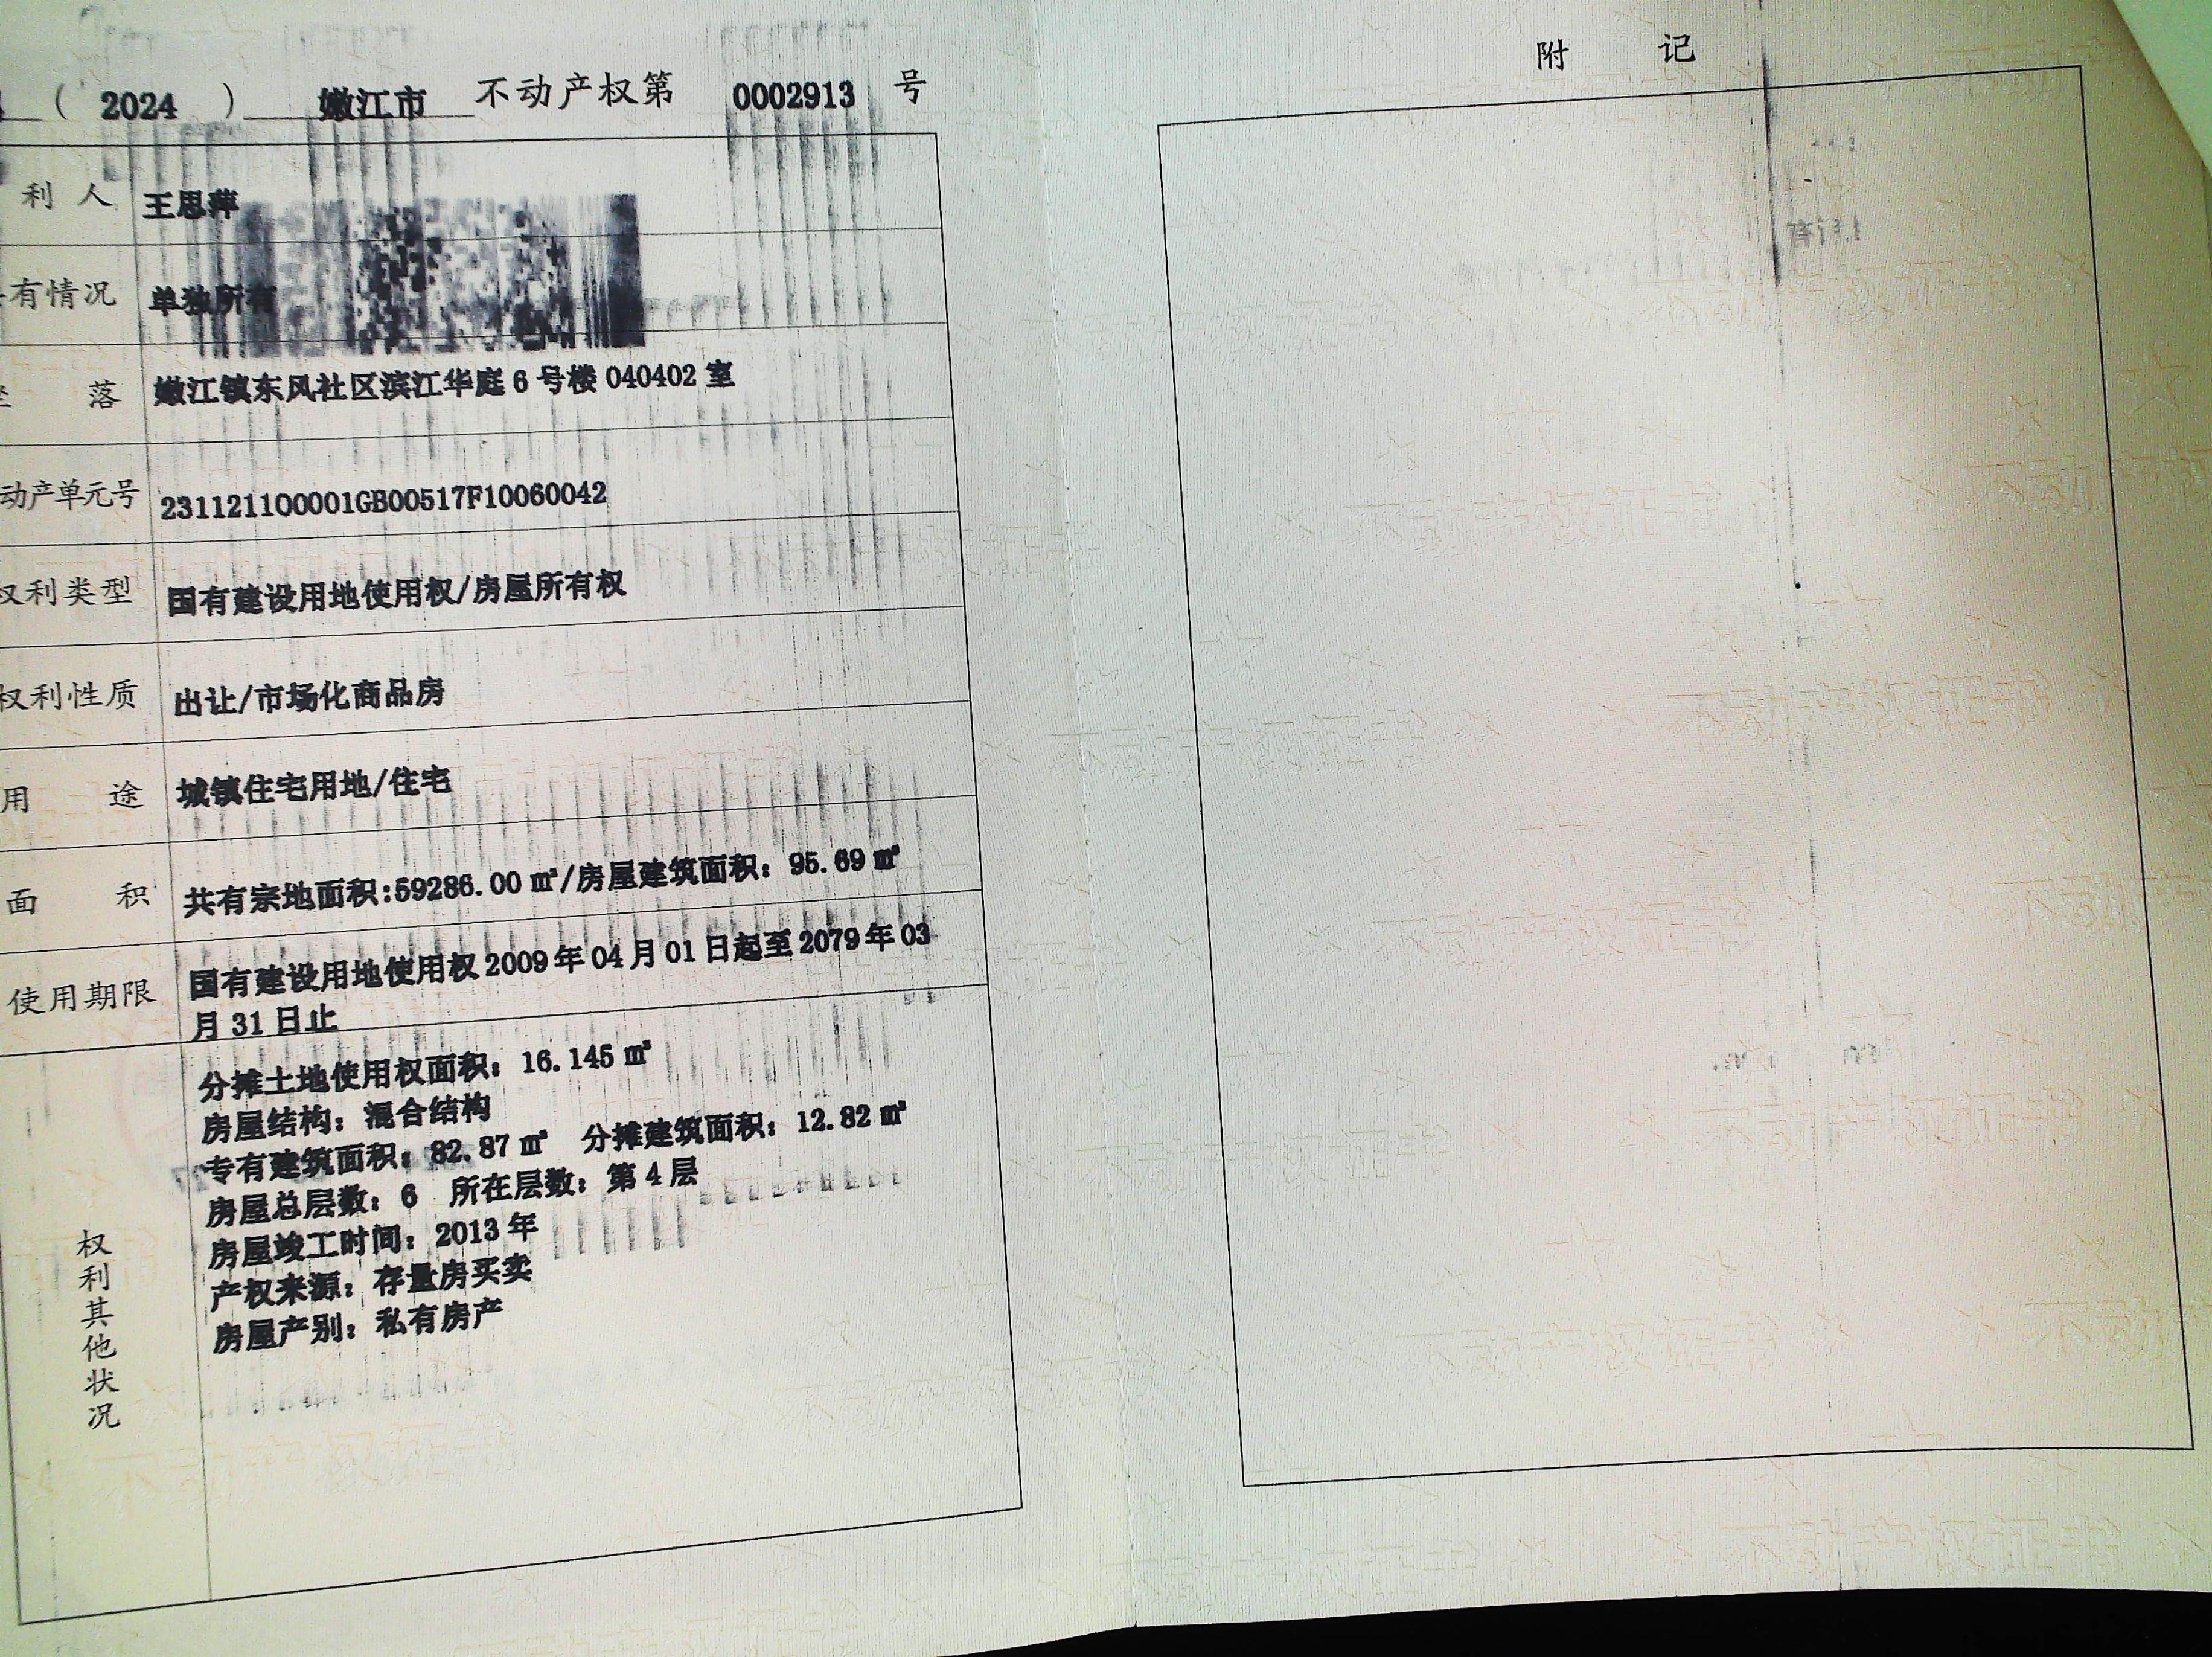 （ 2024 ） 嫩江市 不动产权第 0002913 号
利人 王思萍
有情况 单独所有
落 嫩江镇东风社区滨江华庭 6 号楼 040402 室
动产单元号 231121100001GB00517F10060042
权利类型 国有建设用地使用权/房屋所有权
权利性质 出让/市场化商品房
用途 城镇住宅用地/住宅
面积 共有宗地面积:59286.00 ㎡/房屋建筑面积：95.69 ㎡
使用期限 国有建设用地使用权 2009 年 04 月 01 日起至 2079 年 03
月 31 日止
权利其他状况
分摊土地使用权面积：16.145 ㎡
房屋结构：混合结构
专有建筑面积：82.87 ㎡ 分摊建筑面积：12.82 ㎡
房屋总层数：6 所在层数：第 4 层
房屋竣工时间：2013 年
产权来源：存量房买卖
房屋产别：私有房产
附记